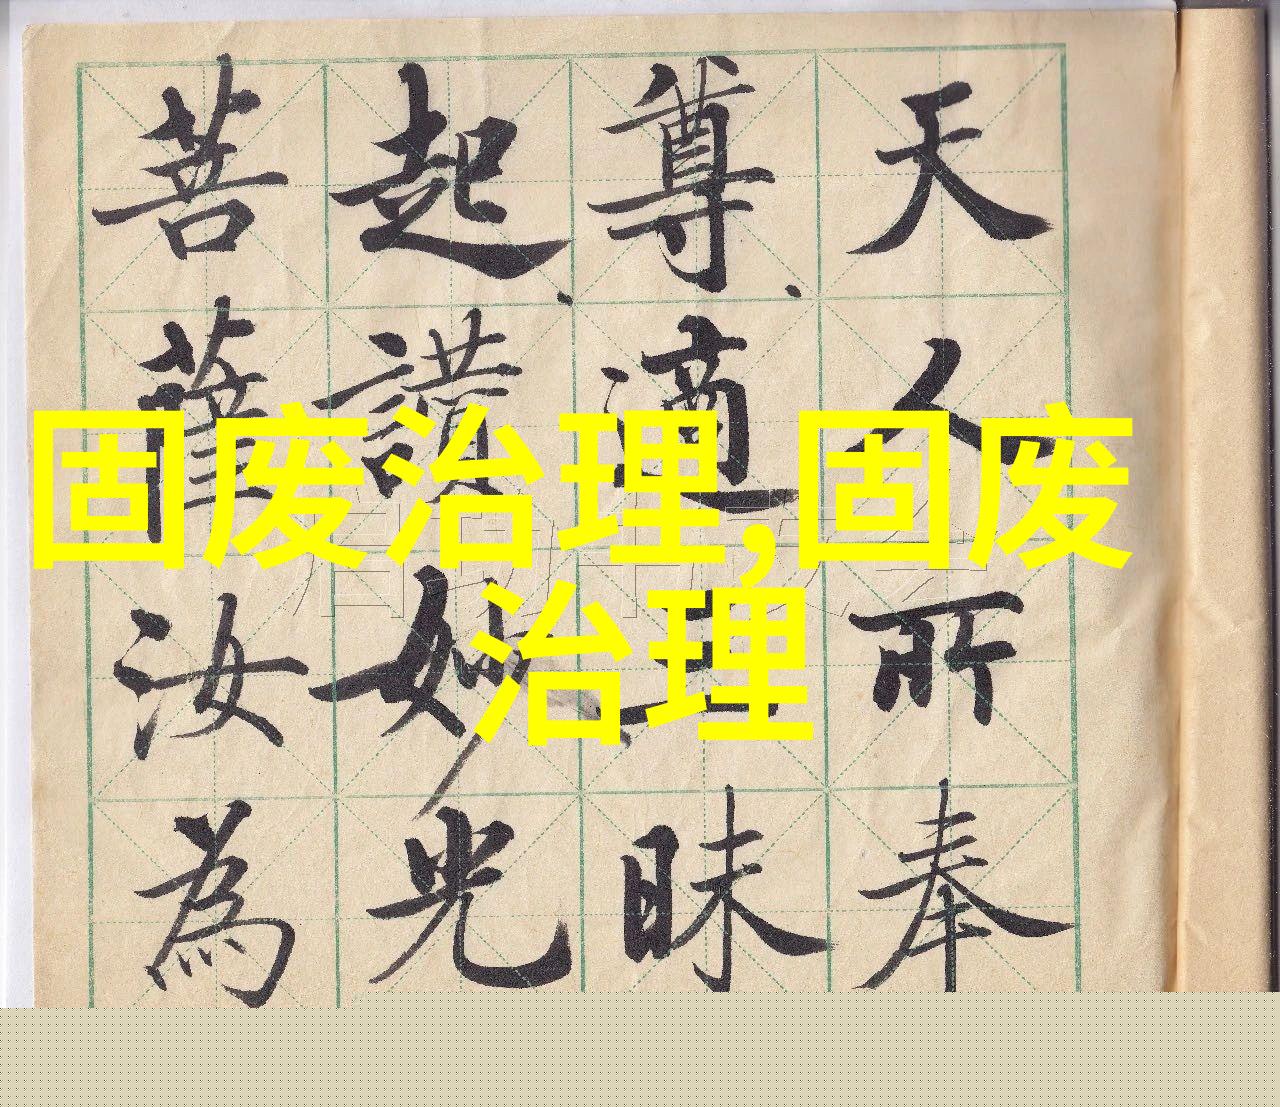 天人所奉
尊適三昧
起妙光
菩薩汝為
固废治理,固废
治理